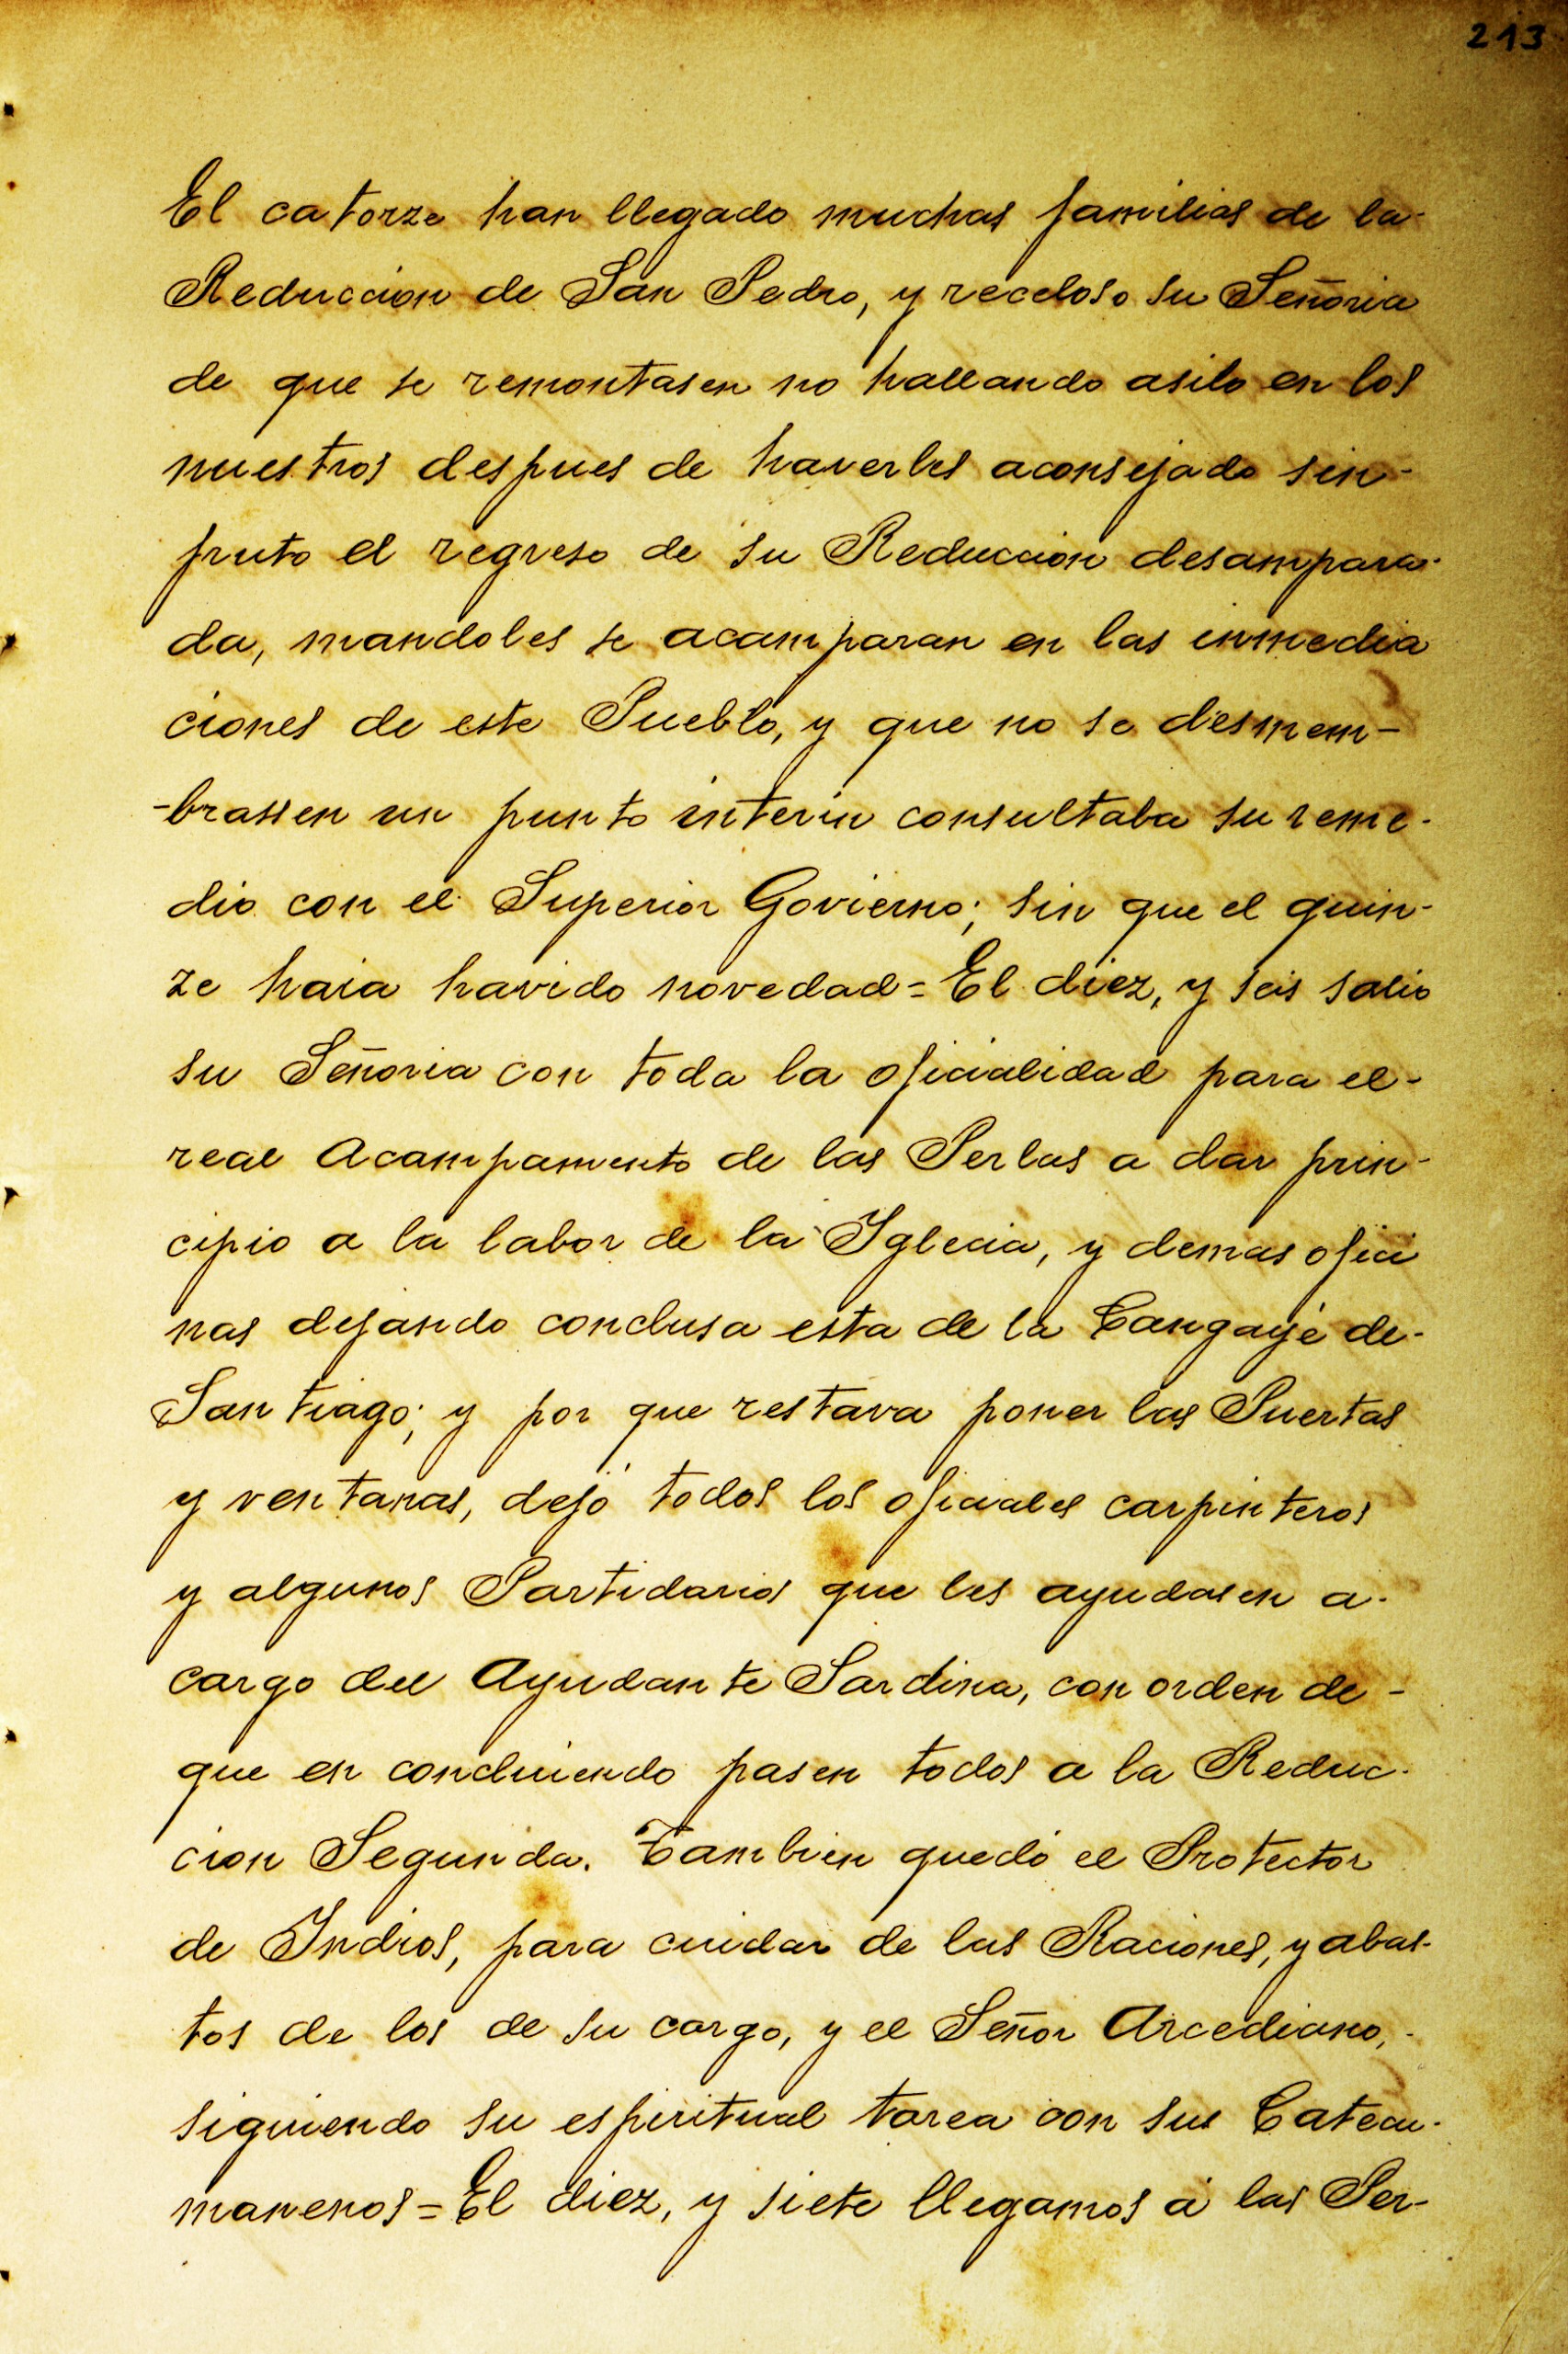 213
El catorze han llegado muchas familias de la-
Reduccion de San Pedro, y receloso su Señoria
de que se remontasen no hallando asilo en los
nuestros despues de haverles aconsejado sin-
fruto el regreso de su Reduccion desampara-
da, mandoles se acamparan en las inmedia
ciones de este Pueblo, y que no se desmem-
-brassen un punto interin consultaba su reme-
dio con el Superior Govierno; sin que el quin-
ze haia havido novedad = El diez, y seis salio
su Señoria con toda la oficialidad para el-
real Acampamento de las Perlas a dar prin-
cipio a la labor de la Iglecia, y demas ofici
nas dejando conclusa esta de la Cangayé de-
Santiago; y por que restava poner las Puertas
y ventanas, dejó todos los oficiales carpinteros
y algunos Partidarios que les ayudasen a-
cargo del Ayudante Sardina, con orden de-
que en concluiendo pasen todos a la Reduc-
cion Segunda. Tambien quedó el Protector
de Indios, para cuidar de las Raciones, y abas-
tos de los de su cargo, y el Señor Arcediano,-
siguiendo su espiritual tarea con sus Catecu-
manenos = El diez, y siete llegamos á las Per-